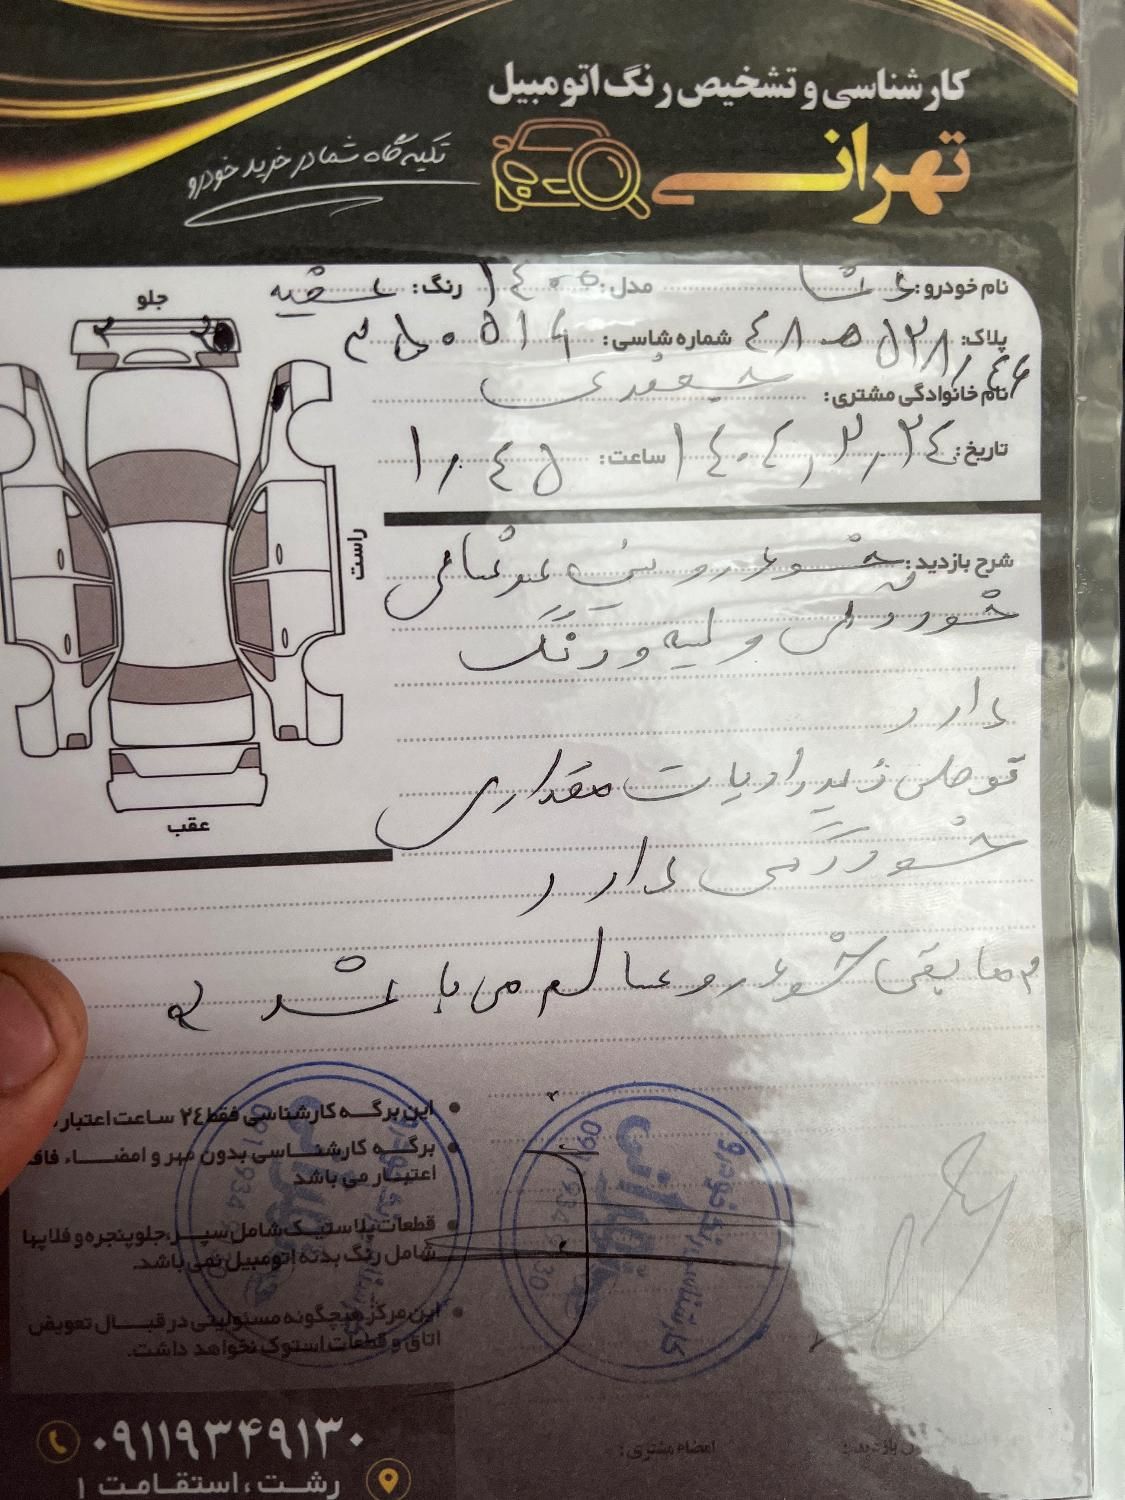 کارشناسی و تشخیص رنگ اتومبیل
تهرانی
تکیه گاه شما در خرید خودرو
نام خودرو: دنا مدل: ۱۴۰۰ رنگ: سفید
پلاک: ۴۸ ۵۳۸/۴۶ شماره شاسی: ۳۵۰۵۱۹
نام خانوادگی مشتری:
تاریخ: ۱۴۰۴/۲/۲۴ ساعت: ۱/۴۵
جلو
راست
عقب
شرح بازدید: خودرو سینی
خوردگی و لبه و رنگ
دارد
قوطی زیر رادیات مقداری
خوردگی دارد
مابقی خودرو سالم می باشد
این برگه کارشناسی فقط ۲۴ ساعت اعتبار
برگه کارشناسی بدون مهر و امضاء فاقد
اعتبار می باشد
قطعات پلاستیک شامل سپر، جلوپنجره و فلاپها
شامل رنگ بدنه اتومبیل نمی باشد.
این مرکز هیچگونه مسئولیتی در قبال تعویض
اتاق و قطعات استوک نخواهد داشت.
کارشناسی رنگ خودرو
تهرانی
امضاء مشتری:
۰۹۱۱۹۳۴۹۱۳۰
رشت، استقامت ۱